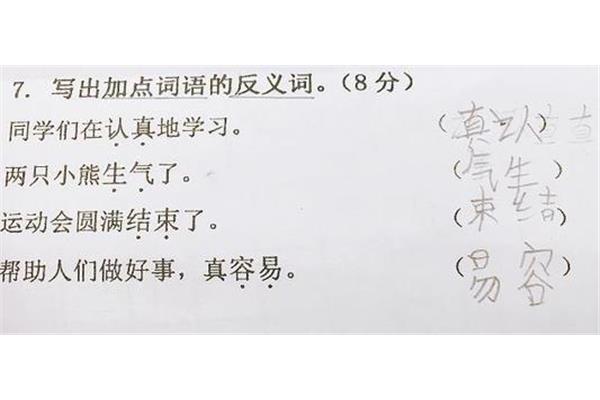 7. 写出加点词语的反义词。（8分）
同学们在认真地学习。（真认）
两只小熊生气了。（气生）
运动会圆满结束了。（束结）
帮助人们做好事，真容易。（易容）